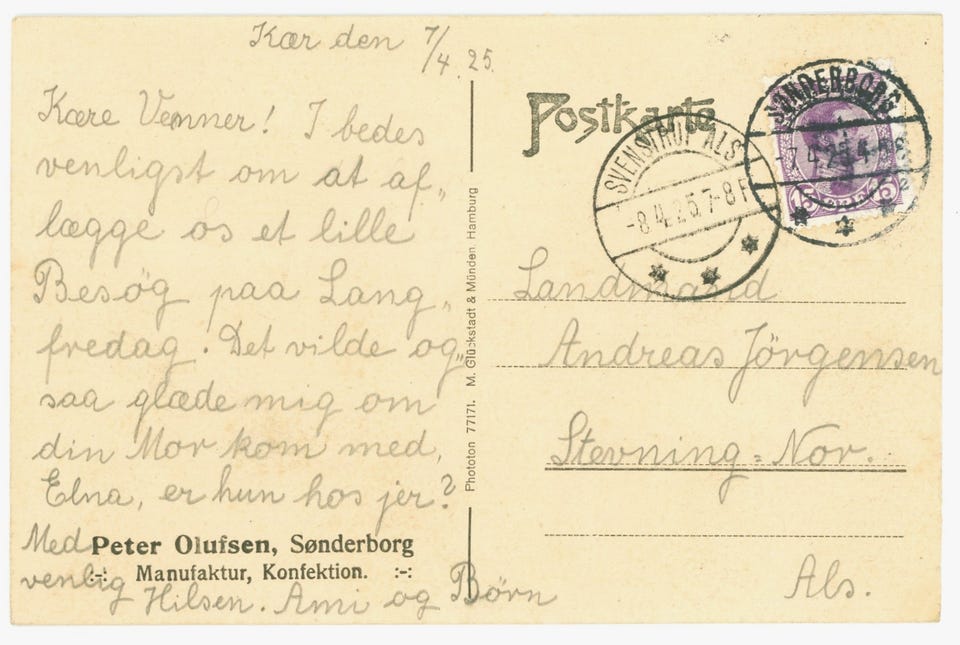 Kær den 7/4.25.
Kære Venner! I bedes
venligst om at af„
lægge os et lille
Besøg paa Lang„
fredag. Det vilde og„
saa glæde mig om
din Mor kom med,
Elna, er hun hos jer?
Med
venlig Hilsen. Ami og Börn
Peter Olufsen, Sønderborg
:-: Manufaktur, Konfektion. :-:
Phototon 77171. M. Glückstadt & Münden, Hamburg
Postkarte
SVENSTRUP ALS
-8.4.25.7-8F
SØNDERBORG
-7.4.25.4-
15 ØRE 15
Landmand
Andreas Jörgensen
Stevning=Nor.
Als.